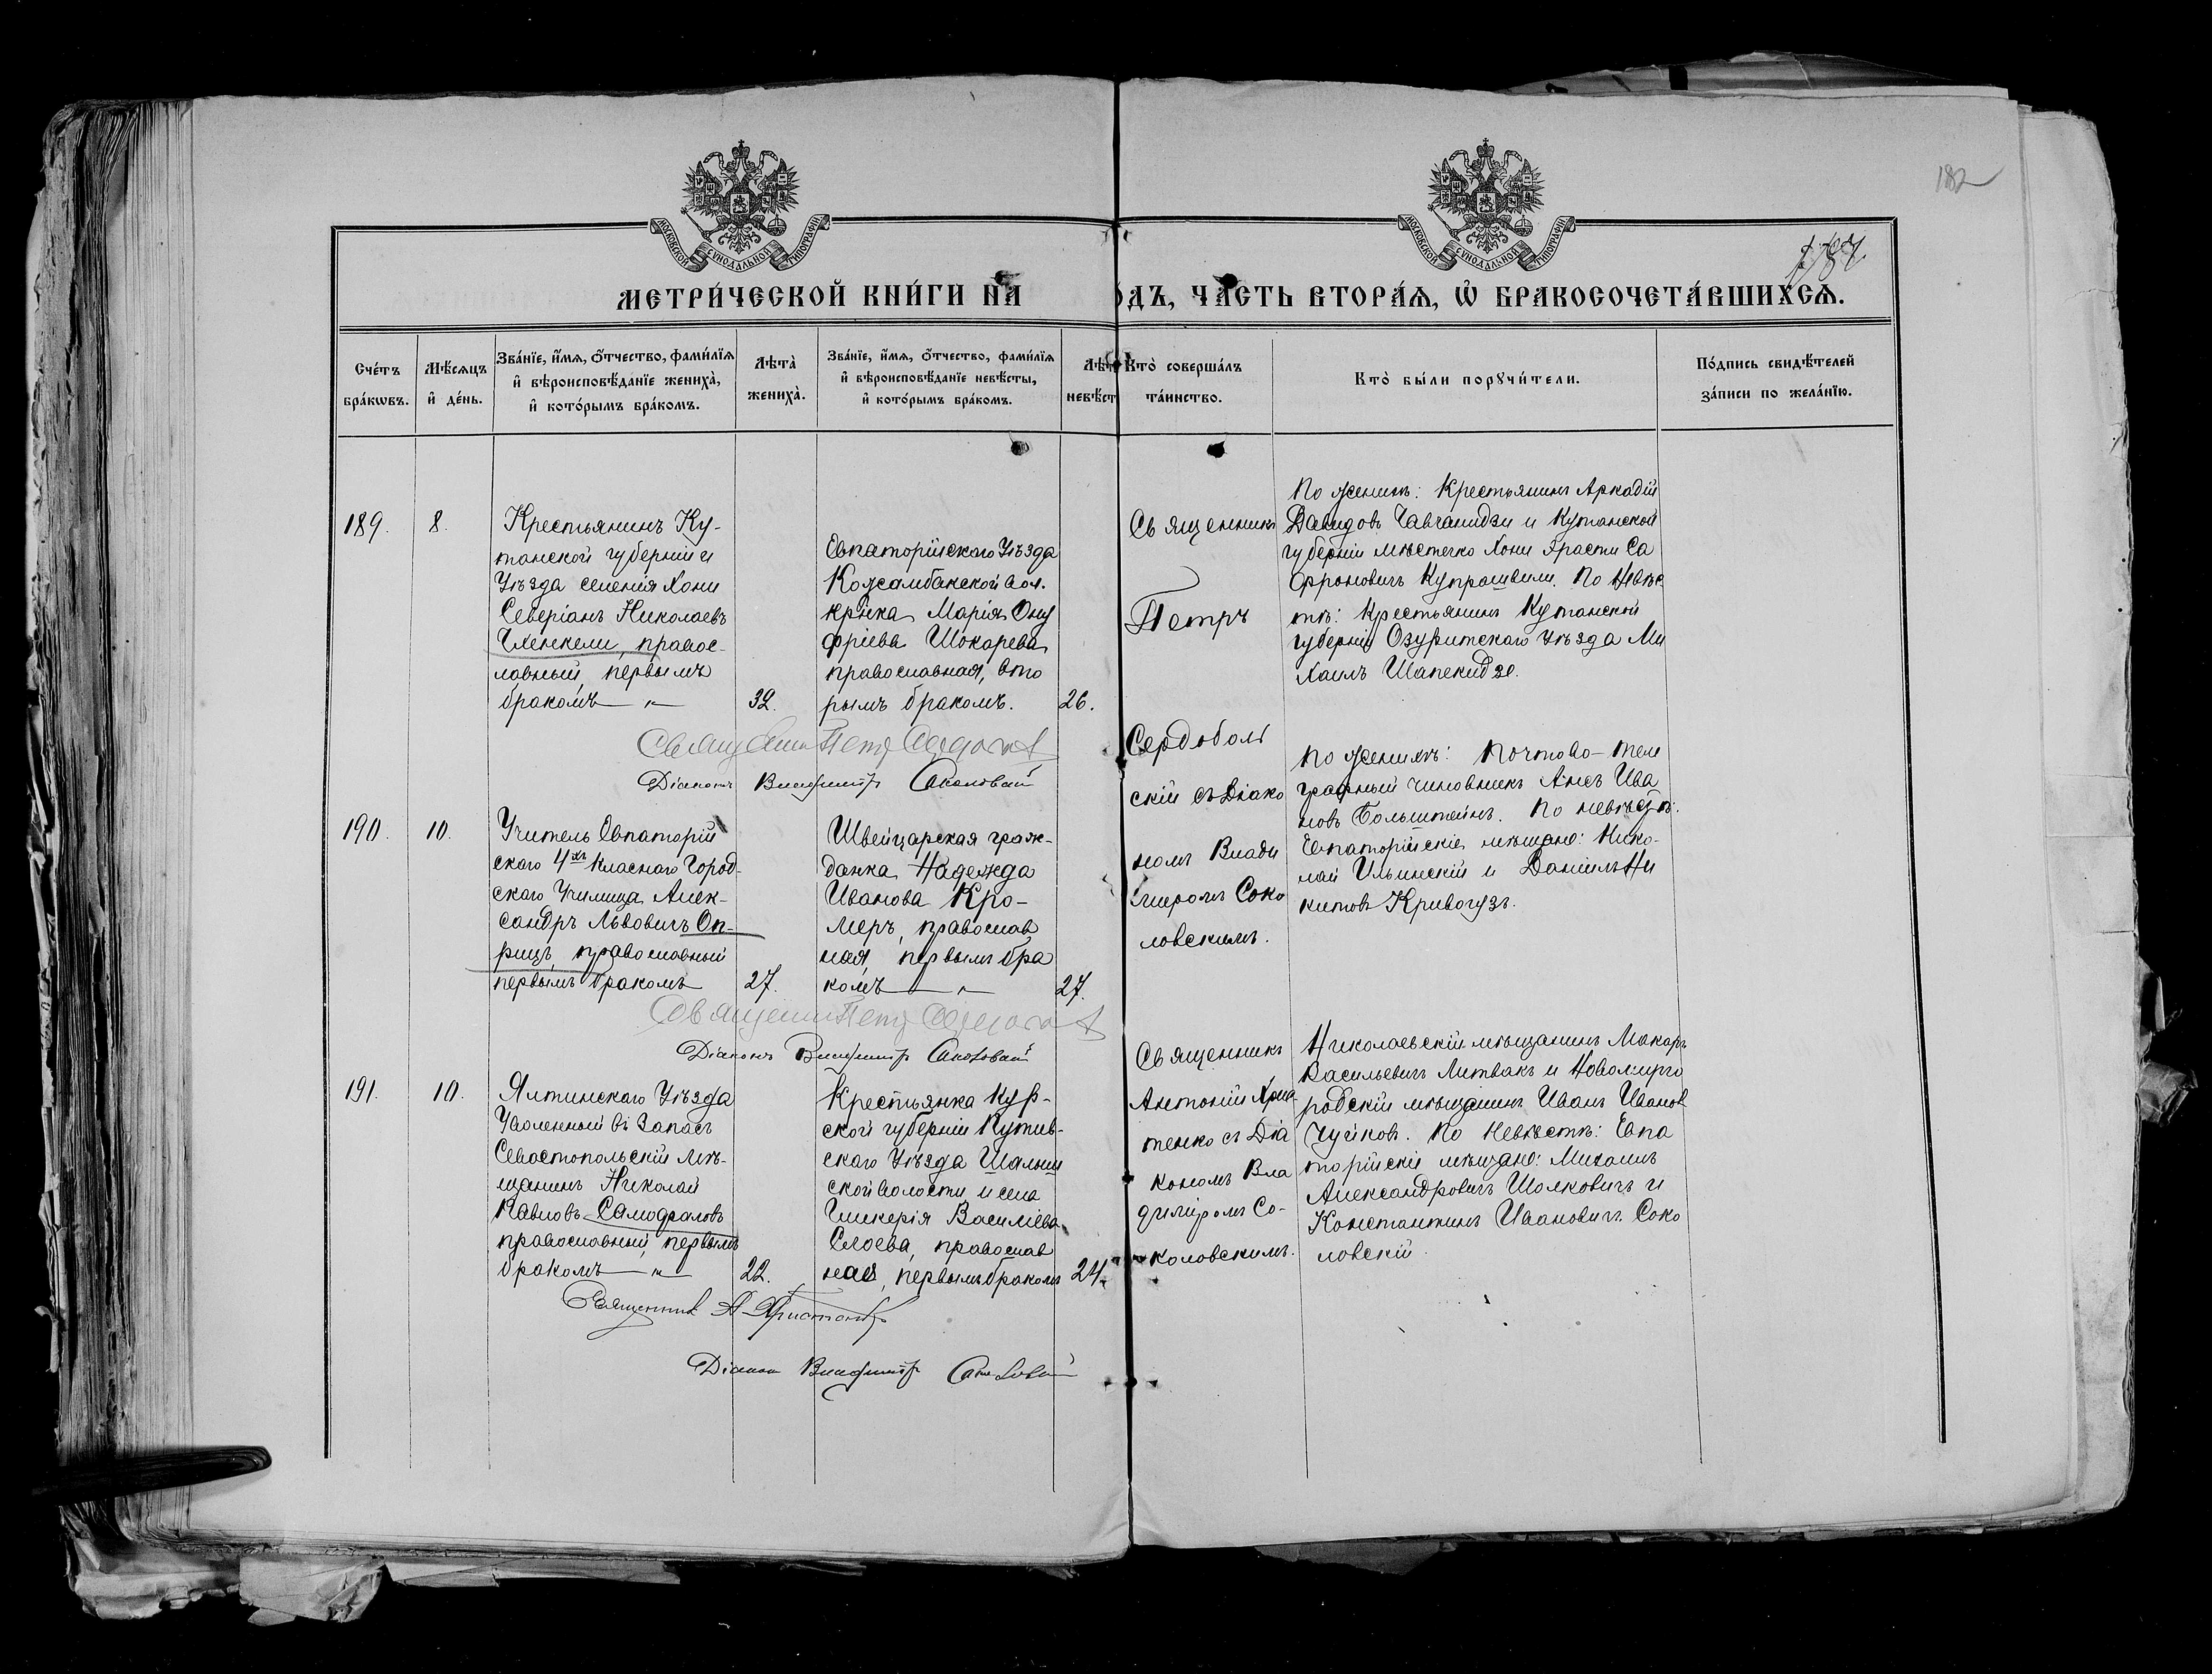 182
187
МОСКОВСКОЙ СУНОДАЛЬНОЙ ТИПОГРАФИИ
МОСКОВСКОЙ СУНОДАЛЬНОЙ ТИПОГРАФИИ
МЕТРИ́ЧЕСКОЙ КНИ́ГИ НА
ОДЪ, ЧА́СТЬ ВТОРА́Ѧ, Ѡ҆ БРАКОСОЧЕТА́ВШИХСѦ.
Сче́тъ
бра́кѡвъ.
Мѣ́сѧцъ
и҆ де́нь.
Зва́нїе, и҆́мѧ, ѻ҆́тчество, фами́лїѧ
и҆ вѣроисповѣ́данїе жениха̀,
и҆ кото́рымъ бра́комъ.
Лѣта̀
жениха̀.
Зва́нїе, и҆́мѧ, ѻ҆́тчество, фами́лїѧ
и҆ вѣроисповѣ́данїе невѣ́сты,
и҆ кото́рымъ бра́комъ.
Лѣт
невѣ́ст
Кто̀ соверша́лъ
та́инство.
Кто̀ бы́ли порꙋчи́тели.
По́дпись свидѣ́телей
за́писи по жела́нїю.
189.
8.
Крестьянинъ Ку-
таиской губерніи и
Уѣзда селенія Хони
Северіанъ Николаевъ
Чхенкели, правос-
лавный, первымъ
бракомъ — " —
32.
Евпаторійскаго Уѣзда
Кожамбакской вол.
кр̃нка Марія Ону
фріева Шокарева
православная, вто
рымъ бракомъ.
26.
Священникъ
Петръ
Сердоболь
скій съ Діако
номъ Влади
міромъ Соко
ловскимъ.
По женихѣ: Крестьянинъ Аркадій
Давидовъ Чавчанидзи и Кутаиской
губерніи мѣстечко Хони Эрасти Са
фроновичъ Купрашвили. По Невѣс
тѣ: Крестьянинъ Кутаиской
губерніи Озургетскаго Уѣзда Ми
хаилъ Шапекидзе.
Священникъ Петр
Діаконъ Владиміръ Соколовскій
190.
10.
Учитель Евпаторій
скаго 4хъ класнаго Город-
скаго Училища Алек-
сандръ Львовичъ Оп-
рицъ, православный
первымъ бракомъ
27.
Швейцарская граж-
данка Надежда
Иванова Кро-
меръ, православ
ная, первымъ бра
комъ — " —
27.
По женихѣ: Почтово-теле
графный чиновникъ Ива
новъ Больштейнъ. По невѣстѣ:
Евпаторійскіе мѣщане: Нико-
лай Ильинскій и Даніилъ Ни
китовъ Кривогузъ.
Священник Петр
Діаконъ Владиміръ Соколовскій
191.
10.
Ялтинскаго Уѣзда
Уволенный въ Запасъ
Севастопольскій мѣ-
щанинъ Николай
Павловъ Самофаловъ
православный, первымъ
бракомъ — " —
22.
Крестьянка Кур-
ской губерніи Путив-
скаго Уѣзда
ской волости и села
Гликерія Василіева
Слоева, православ
ная, первымъ бракомъ
24.
Священникъ
Антоній Хрис
тенко съ Діа
кономъ Вла
диміромъ Со-
коловскимъ.
Николаевскій мѣщанинъ Макаръ
Васильевичъ Литвакъ и Новомирго
родскій мѣщанинъ Иванъ Иванов
Чуйковъ. По Невѣстѣ: Евпа
торійскіе мѣщане: Михаилъ
Александровичъ Шолковичъ и
Константинъ Ивановичъ Соко
ловскій.
Священник А Христенко
Діакон Владиміръ Соколовскій